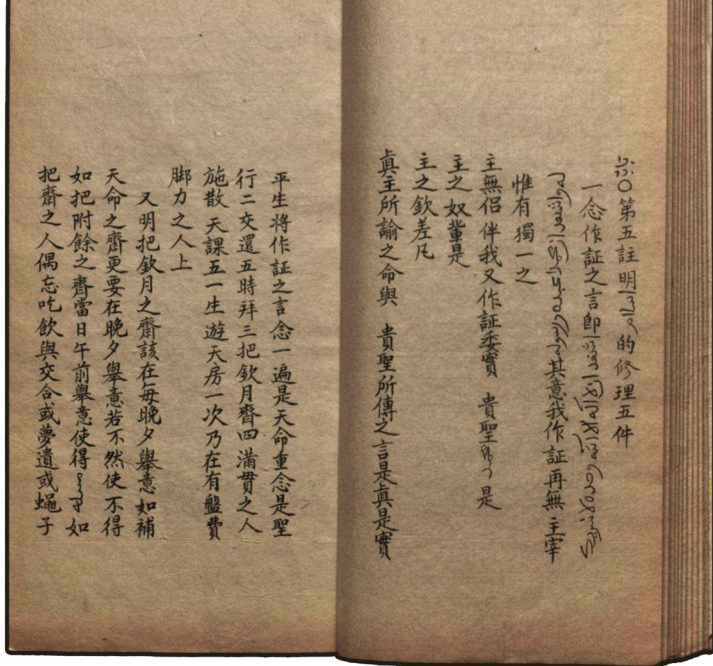 ○第五註明 的修理五件
一念作証之言即
其意我作証再無 主宰
惟有獨一之
主無侶伴我又作証委實 貴聖 是
主之奴輩是
主之欽差凡
眞主所諭之命與 貴聖所傳之言是眞是實
平生將作証之言念一遍是天命重念是聖
行二交還五時拜三把欽月齋四滿貫之人
施散 天課五一生遊天房一次乃在有盤費
脚力之人上
又明把欽月之齋該在每晚夕舉意如補
天命之齋更要在晚夕舉意若不然使不得
如把附餘之齋當日午前舉意使得 如
把齋之人偶忘吃飲與交合或夢遺或蝇子